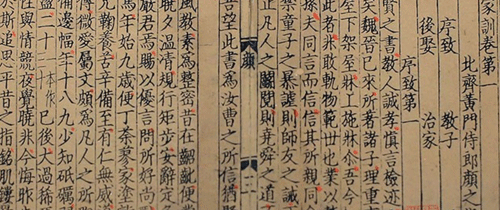 家訓卷第一
北齊黃門侍郎顏之
序致 教子
後娶 治家
序致第一
賢之書教人誠孝慎言檢迹
矣魏晉已來所著諸子理重
屋下架屋牀上施牀尒吾今
此者非敢軌物範世也業以
孫夫同言而信信其所親同
禁童子之暴謔則師友之誡
止凡人之鬬鬩則堯舜之
吾望此書爲汝曹之所信猶
風教素爲整密昔在齠齔便
曉夕溫凊規行矩步安辭定
嚴君焉賜以優言問所好尚
年始九歲便丁荼蓼家塗
兄鞠養苦辛備至有仁無威
傳微愛屬文頗爲凡人之所
備邊幅年十八九少知砥礪
盪二十二本作已後大過稀
與情競夜覺曉非今悔昨
於斯追思平昔之指銘肌鏤